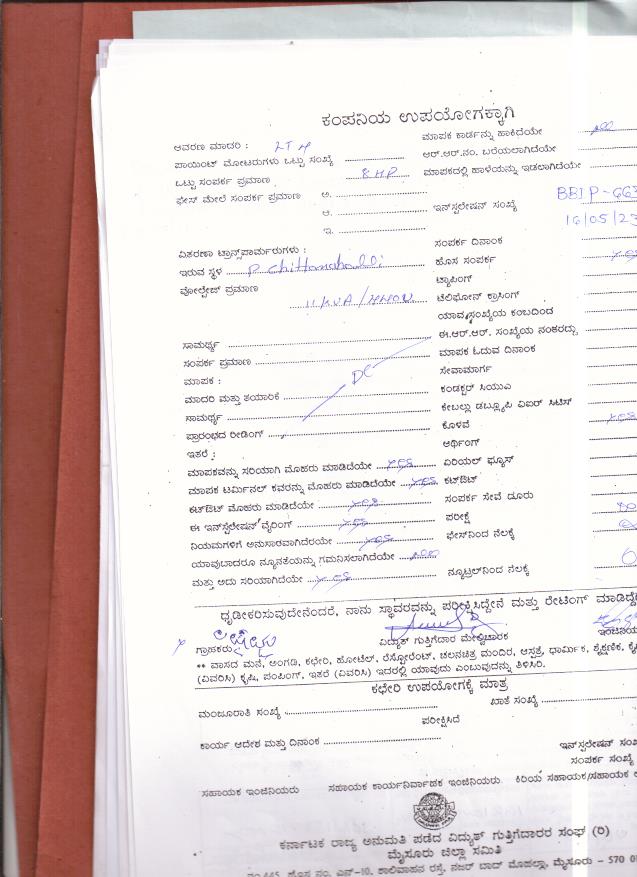 ಕಂಪನಿಯ ಉಪಯೋಗಕ್ಕಾಗಿ
ಆವರಣ ಮಾದರಿ : LT4 ಮಾಪಕ ಕಾರ್ಡನ್ನು ಹಾಕಿದೆಯೇ
ಪಾಯಿಂಟ್ ಮೋಟರುಗಳು ಒಟ್ಟು ಸಂಖ್ಯೆ ಆರ್.ಆರ್.ನಂ. ಬರೆಯಲಾಗಿದೆಯೇ
ಒಟ್ಟು ಸಂಪರ್ಕ ಪ್ರಮಾಣ 8 HP ಮಾಪಕದಲ್ಲಿ ಹಾಳೆಯನ್ನು ಇಡಲಾಗಿದೆಯೇ
ಫೇಸ್ ಮೇಲೆ ಸಂಪರ್ಕ ಪ್ರಮಾಣ ಅ.
ಆ. ಇನ್‌ಸ್ಟಲೇಷನ್ ಸಂಖ್ಯೆ BBIP-663
ಇ. 16/05/23
ವಿತರಣಾ ಟ್ರಾನ್ಸ್‌ಫಾರ್ಮರುಗಳು : ಸಂಪರ್ಕ ದಿನಾಂಕ
ಇರುವ ಸ್ಥಳ P. Chittanahalli ಹೊಸ ಸಂಪರ್ಕ yes
ವೋಲ್ಟೇಜ್ ಪ್ರಮಾಣ ಟ್ಯಾಪಿಂಗ್
11 KVA / ಟೆಲಿಫೋನ್ ಕ್ರಾಸಿಂಗ್
ಯಾವ ಸಂಖ್ಯೆಯ ಕಂಬದಿಂದ
ಸಾಮರ್ಥ್ಯ ಈ.ಆರ್.ಆರ್. ಸಂಖ್ಯೆಯ ನಂತರದ್ದು
ಸಂಪರ್ಕ ಪ್ರಮಾಣ ಮಾಪಕ ಓದುವ ದಿನಾಂಕ
ಮಾಪಕ : DC ಸೇವಾಮಾರ್ಗ
ಮಾದರಿ ಮತ್ತು ತಯಾರಿಕೆ ಕಂಡಕ್ಟರ್ ಸಿಯುಎ
ಸಾಮರ್ಥ್ಯ ಕೇಬಲ್ಲು ಡಬ್ಲ್ಯೂಪಿ ಏಐರ್ ಸಿಟಿಸ್
ಪ್ರಾರಂಭದ ರೀಡಿಂಗ್ ಕೊಳವೆ yes
ಇತರೆ : ಅರ್ಥಿಂಗ್
ಮಾಪಕವನ್ನು ಸರಿಯಾಗಿ ಮೊಹರು ಮಾಡಿದೆಯೇ yes ಏರಿಯಲ್ ಫ್ಯೂಸ್
ಮಾಪಕ ಟರ್ಮಿನಲ್ ಕವರನ್ನು ಮೊಹರು ಮಾಡಿದೆಯೇ yes ಕಟ್‌ಔಟ್
ಕಟ್‌ಔಟ್ ಮೊಹರು ಮಾಡಿದೆಯೇ yes ಸಂಪರ್ಕ ಸೇವೆ ದೂರು
ಈ ಇನ್‌ಸ್ಟಲೇಷನ್ ವೈರಿಂಗ್ yes ಪರೀಕ್ಷೆ
ನಿಯಮಗಳಿಗೆ ಅನುಸಾರವಾಗಿದೆರಯೇ yes ಫೇಸ್‌ನಿಂದ ನೆಲಕ್ಕೆ
ಯಾವುಬಾದರೂ ನ್ಯೂನತೆಯನ್ನು ಗಮನಿಸಲಾಗಿದೆಯೇ
ಮತ್ತು ಅದು ಸರಿಯಾಗಿದೆಯೇ yes ನ್ಯೂಟ್ರಲ್‌ನಿಂದ ನೆಲಕ್ಕೆ
ಧೃಡೀಕರಿಸುವುದೇನೆಂದರೆ, ನಾನು ಸ್ಥಾವರವನ್ನು ಪರೀಕ್ಷಿಸಿದ್ದೇನೆ ಮತ್ತು ರೇಟಿಂಗ್ ಮಾಡಿದ್ದೇ
ಗ್ರಾಹಕರು ವಿದ್ಯುತ್ ಗುತ್ತಿಗೆದಾರ ಮೇಲ್ವಿಚಾರಕ ಇಂಜಿನಿಯ
** ವಾಸದ ಮನೆ, ಅಂಗಡಿ, ಕಛೇರಿ, ಹೋಟೆಲ್, ರೆಸ್ಟೋರೆಂಟ್, ಚಲನಚಿತ್ರ ಮಂದಿರ, ಆಸ್ಪತ್ರೆ, ಧಾರ್ಮಿಕ, ಶೈಕ್ಷಣಿಕ, ಕೈ
(ವಿವರಿಸಿ) ಕೃಷಿ, ಪಂಪಿಂಗ್, ಇತರೆ (ವಿವರಿಸಿ) ಇದರಲ್ಲಿ ಯಾವುದು ಎಂಬುವುದನ್ನು ತಿಳಿಸಿರಿ.
ಕಛೇರಿ ಉಪಯೋಗಕ್ಕೆ ಮಾತ್ರ
ಮಂಜೂರಾತಿ ಸಂಖ್ಯೆ ಖಾತೆ ಸಂಖ್ಯೆ
ಪರೀಕ್ಷಿಸಿದೆ
ಕಾರ್ಯ ಆದೇಶ ಮತ್ತು ದಿನಾಂಕ ಇನ್‌ಸ್ಟಲೇಷನ್ ಸಂಖ
ಸಂಪರ್ಕ ಸಂಖ್ಯೆ
ಸಹಾಯಕ ಇಂಜಿನಿಯರು ಸಹಾಯಕ ಕಾರ್ಯನಿರ್ವಾಹಕ ಇಂಜಿನಿಯರು ಕಿರಿಯ ಸಹಾಯಕ/ಸಹಾಯಕ
ಕರ್ನಾಟಕ ರಾಜ್ಯ ಅನುಮತಿ ಪಡೆದ ವಿದ್ಯುತ್ ಗುತ್ತಿಗೆದಾರರ ಸಂಘ (ರಿ)
ಮೈಸೂರು ಜಿಲ್ಲಾ ಸಮಿತಿ
ನಂ.445, ಹೊಸ ನಂ. ಎನ್-10, ಶಾಲಿವಾಹನ ರಸ್ತೆ, ನಜರ್ ಬಾದ್ ಮೊಹಲ್ಲಾ, ಮೈಸೂರು - 570 0